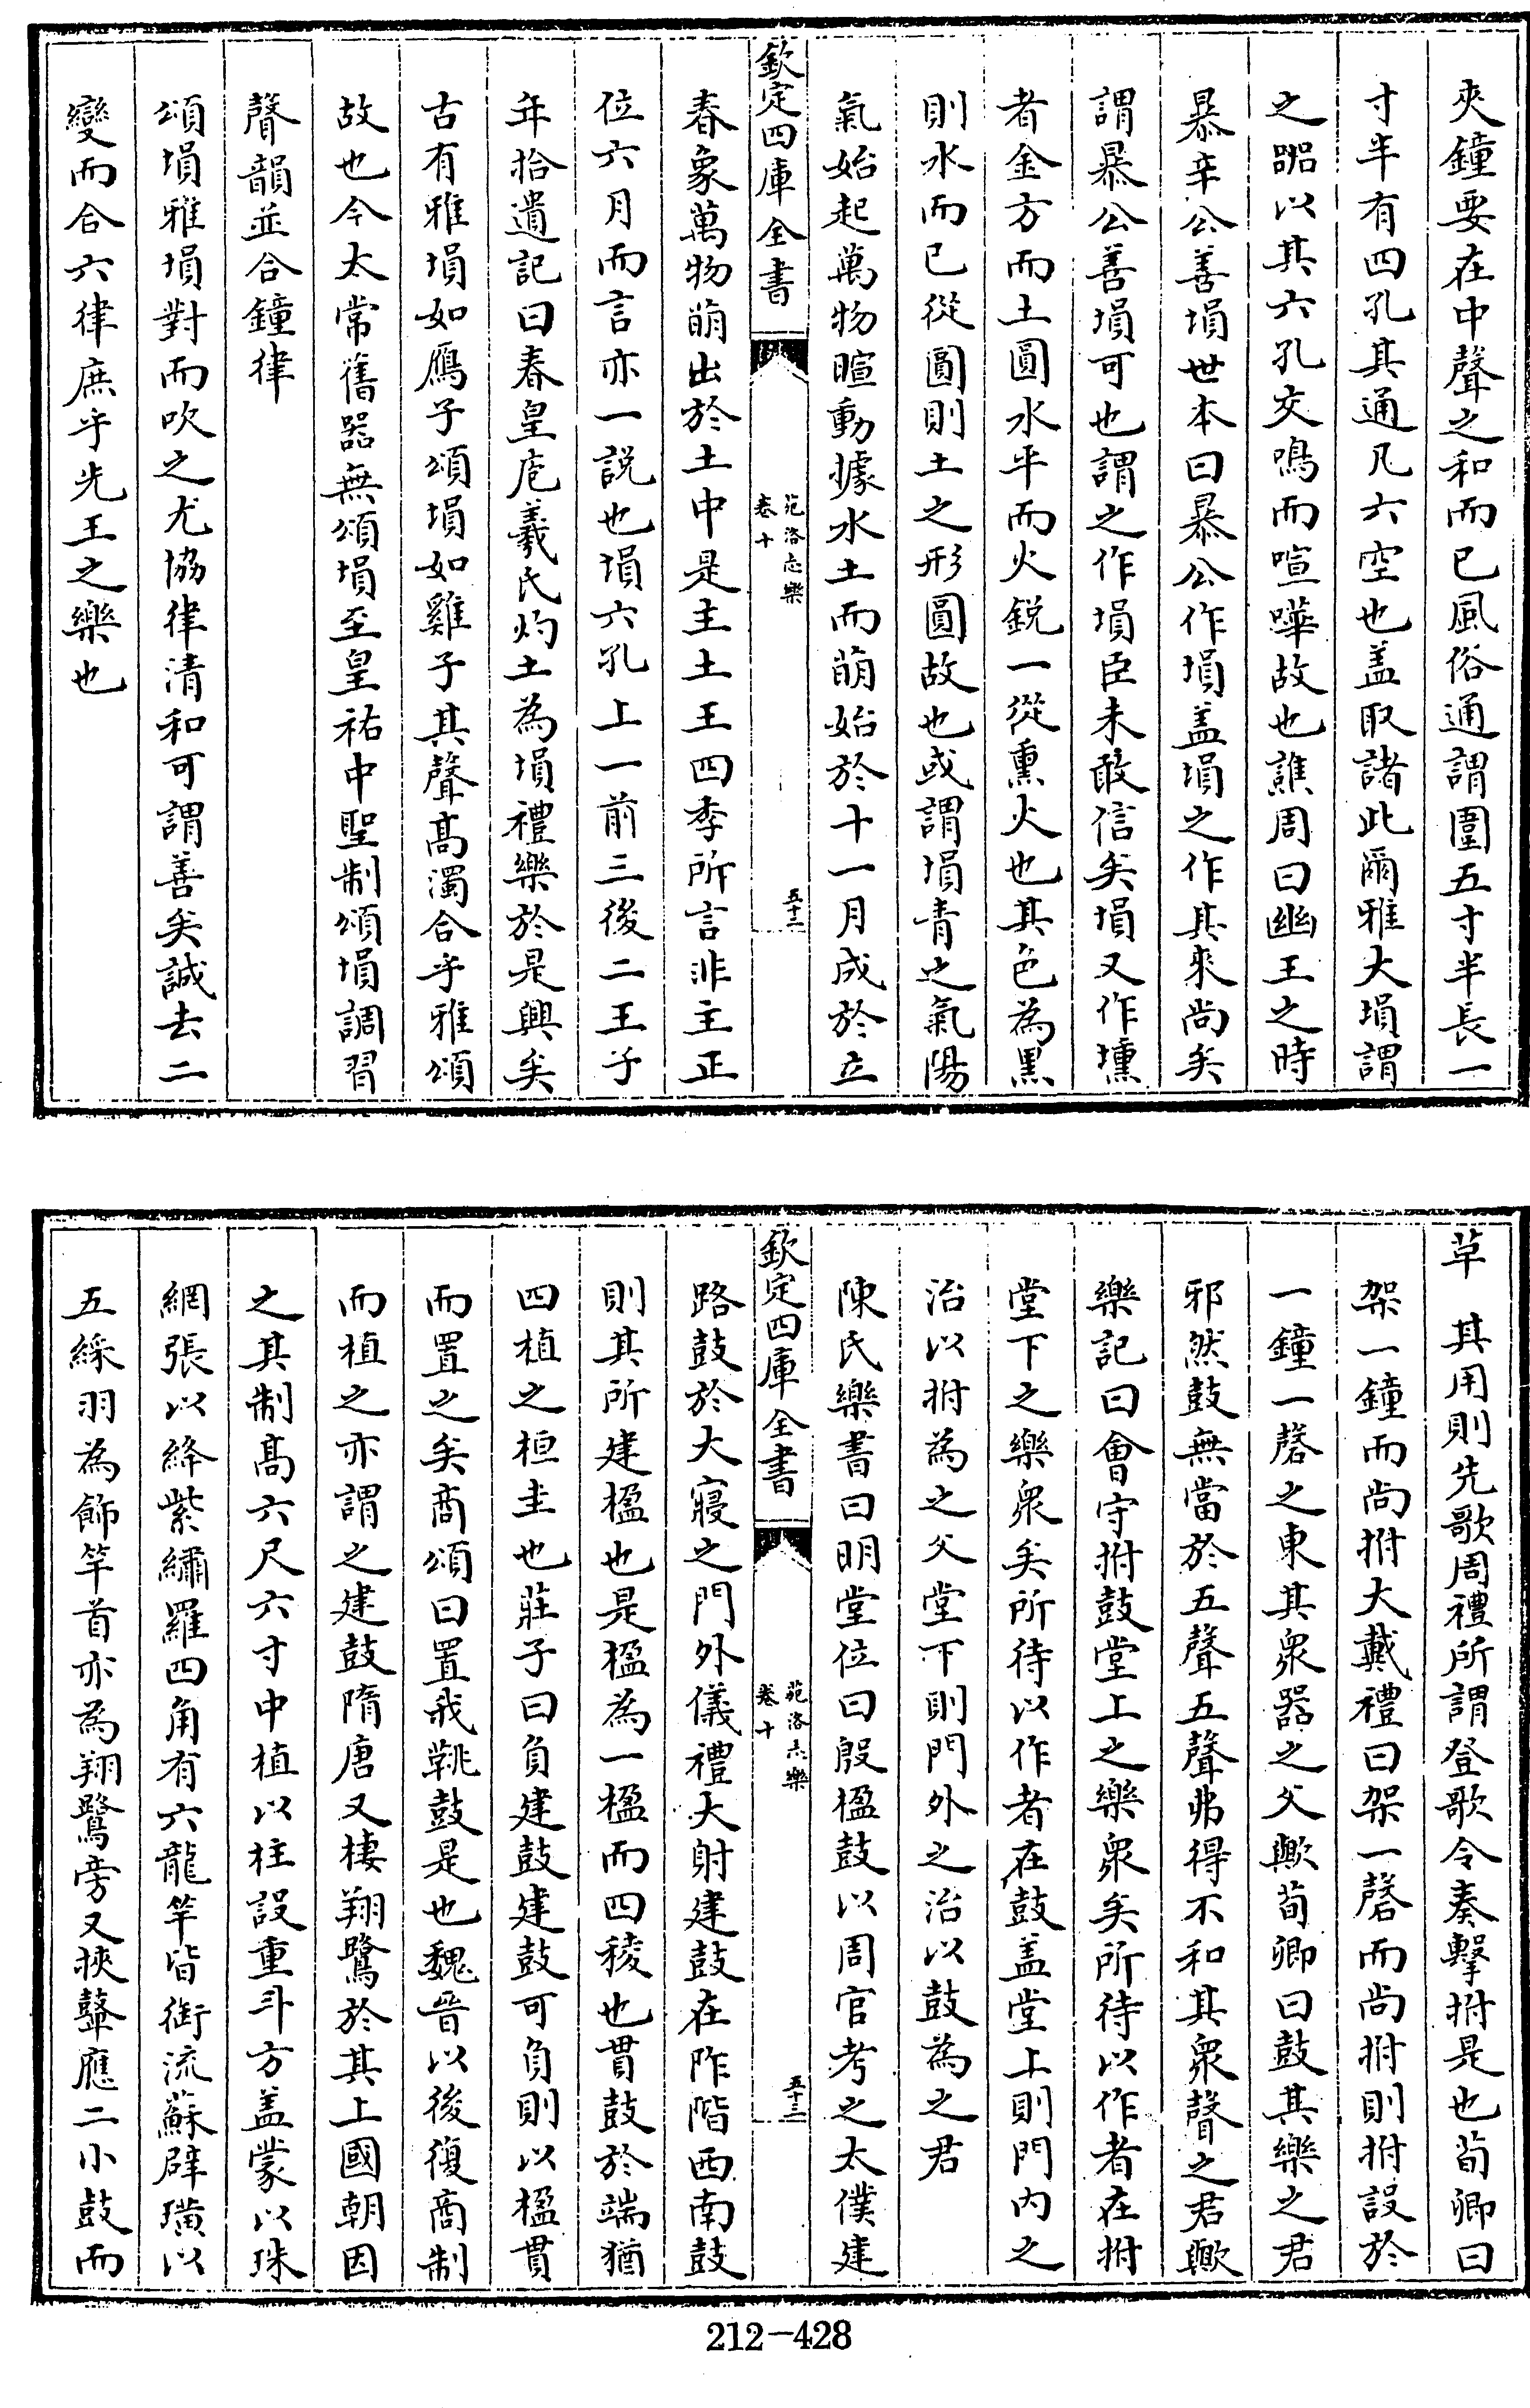 夾鐘要在中聲之和而已風俗通謂圍五寸半長一
寸半有四孔其通凡六空也盖取諸此爾雅大塤謂
之㗊以其六孔交鳴而喧嘩故也譙周曰幽王之時
暴辛公善塤世本曰暴公作塤盖塤之作其來尚矣
謂暴公善塤可也謂之作塤臣未敢信矣塤又作壎
者金方而土圓水平而火鋭一從熏火也其色為黒
則水而已從圓則土之形圓故也或謂塤青之氣陽
氣始起萬物暄動據水土而萌始於十一月成於立
欽定四庫全書
苑洛志樂
卷十
五十二
春象萬物萌出於土中是主土王四季所言非主正
位六月而言亦一説也塤六孔上一前三後二王子
年拾遺記曰春皇庖羲氏灼土為塤禮樂於是興矣
古有雅塤如鴈子頌塤如雞子其聲髙濁合乎雅頌
故也今太常舊器無頌塤至皇祐中聖制頌塤調習
聲韻並合鐘律
頌塤雅塤對而吹之尤協律清和可謂善矣誠去二
變而合六律庶乎先王之樂也
草　其用則先歌周禮所謂登歌令奏擊拊是也荀卿曰
架一鐘而尚拊大戴禮曰架一磬而尚拊則拊設於
一鐘一磬之東其衆器之父歟荀卿曰鼓其樂之君
邪然鼓無當於五聲五聲弗得不和其衆聲之君歟
樂記曰會守拊鼓堂上之樂衆矣所待以作者在拊
堂下之樂衆矣所待以作者在鼓盖堂上則門内之
治以拊為之父堂下則門外之治以鼓為之君
陳氏樂書曰明堂位曰殷楹鼓以周官考之太僕建
欽定四庫全書
苑洛志樂
卷十
五十三
路鼓於大寢之門外儀禮大射建鼓在阼階西南鼓
則其所建楹也是楹為一楹而四稜也貫鼓於端猶
四植之桓圭也莊子曰負建鼓建鼓可負則以楹貫
而置之矣商頌曰置我鞉鼓是也魏晉以後復商制
而植之亦謂之建鼓隋唐又棲翔鷺於其上國朝因
之其制髙六尺六寸中植以柱設重斗方盖蒙以珠
網張以絳紫繡羅四角有六龍竿皆銜流蘇璧璜以
五綵羽為飾竿首亦為翔鷺旁又挾鼙應二小鼓而
212-428